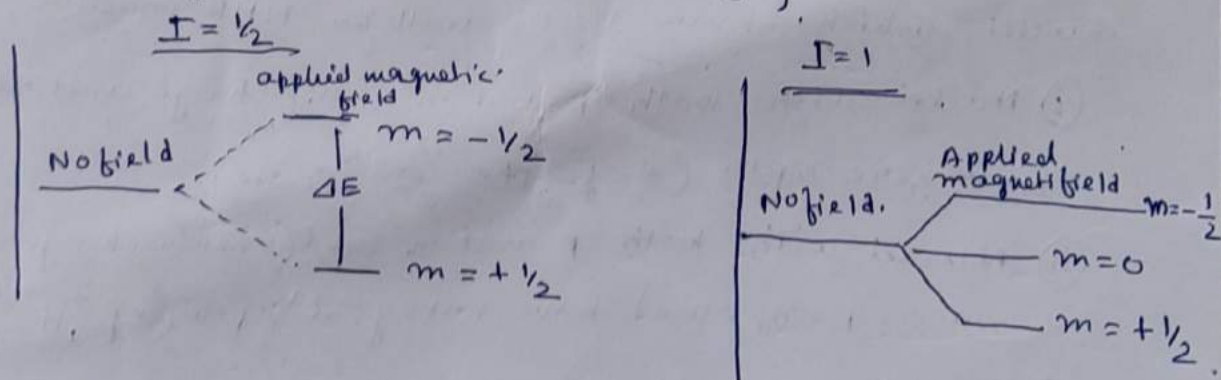 I = 1/2
applied magnetic.
field
m = - 1/2
No field
ΔE
m = + 1/2
I = 1
Applied
magnetifield
m=-1/2
No field.
m = 0
m = + 1/2